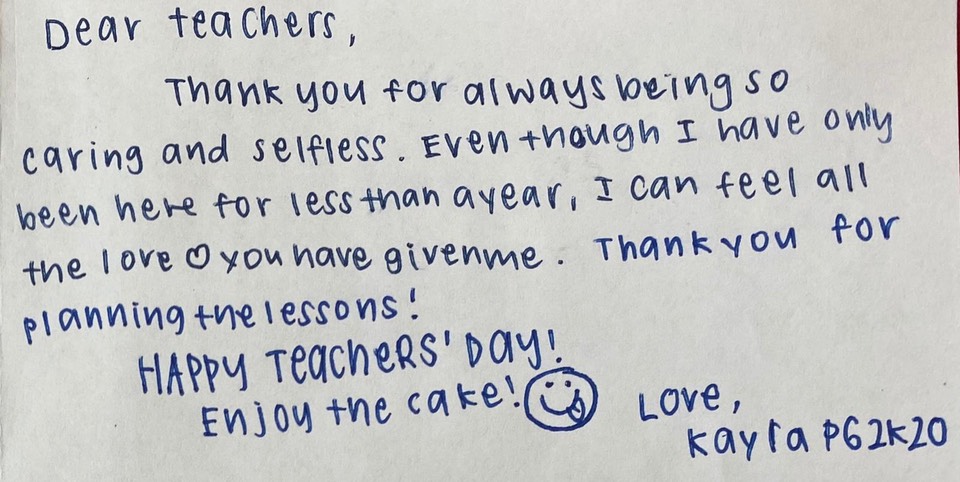 Dear teachers,
Thank you for always being so
caring and selfless. Even though I have only
been here for less than a year, I can feel all
the love ♡ you have given me. Thank you for
planning the lessons!
HAPPY TEACHERS' DAY!
Enjoy the cake!
Love,
Kayla PG2K20